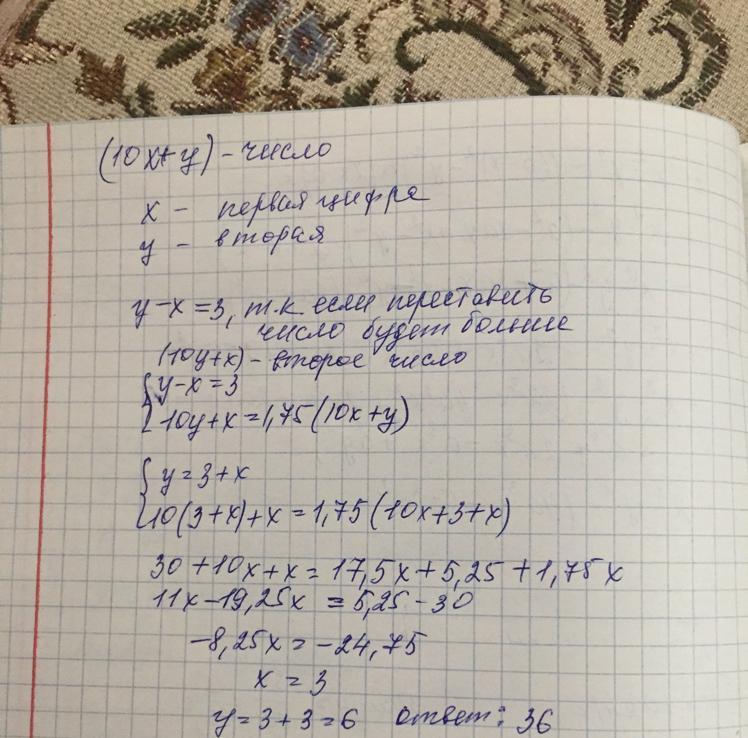 (10x+y) - число
x - первая цифра
y - вторая
y-x=3, т.к. если переставить
число будет больше
(10y+x) - второе число
{ y-x=3
10y+x=1,75(10x+y)
{ y=3+x
10(3+x)+x=1,75(10x+3+x)
30+10x+x=17,5x+5,25+1,75x
11x-19,25x=5,25-30
-8,25x=-24,75
x=3
y=3+3=6 Ответ: 36